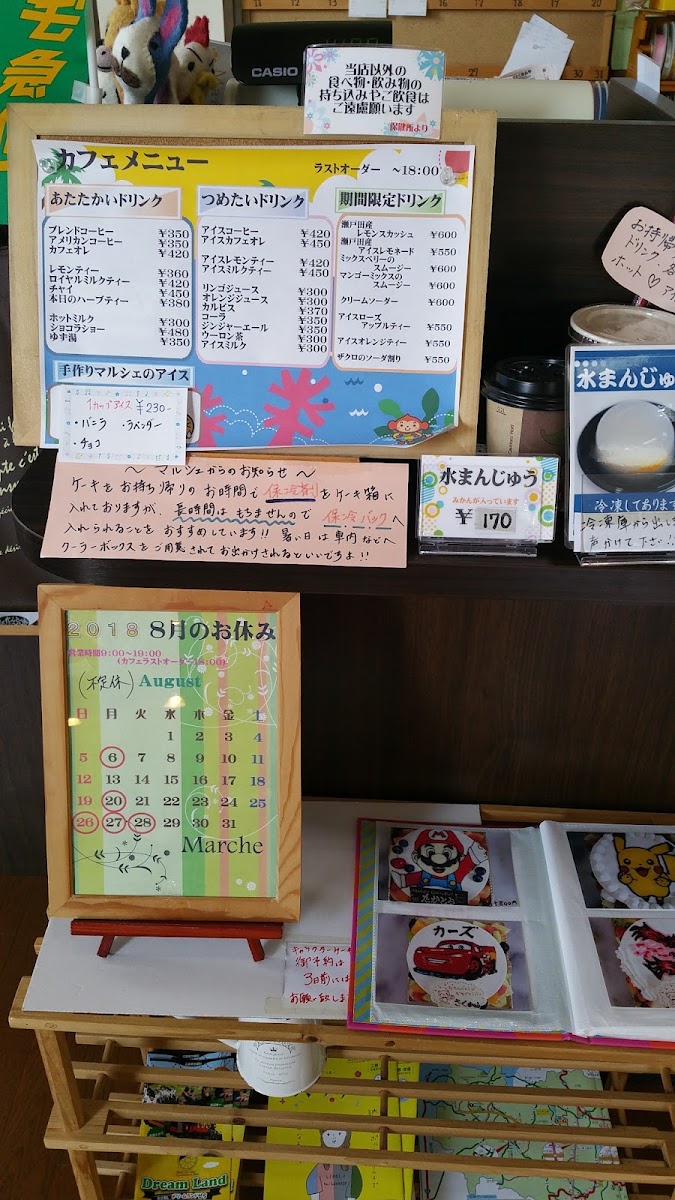 宅急
CASIO
当店以外の
食べ物・飲み物の
持ち込みやご飲食は
ご遠慮願います
保健所より
カフェメニュー
ラストオーダー ～18:00
あたたかいドリンク
ブレンドコーヒー ¥350
アメリカンコーヒー ¥350
カフェオレ ¥420
レモンティー ¥360
ロイヤルミルクティー ¥420
チャイ ¥450
本日のハーブティー ¥380
ホットミルク ¥300
ショコラショー ¥480
ゆず湯 ¥350
つめたいドリンク
アイスコーヒー ¥420
アイスカフェオレ ¥450
アイスレモンティー ¥420
アイスミルクティー ¥450
リンゴジュース ¥300
オレンジジュース ¥300
カルピス ¥370
コーラ ¥350
ジンジャーエール ¥350
ウーロン茶 ¥300
アイスミルク ¥300
期間限定ドリンク
瀬戸田産
レモンスカッシュ ¥600
瀬戸田産
アイスレモネード ¥550
ミックスベリーの
スムージー ¥600
マンゴーミックスの
スムージー ¥600
クリームソーダー ¥600
アイスローズ
アップルティー ¥550
アイスオレンジティー ¥550
ザクロのソーダ割り ¥550
手作りマルシェのアイス
1カップアイス ¥230-
・バニラ ・ラベンダー
・チョコ
お持帰
ドリンク
ホット♡アイ
～ マルシェからのお知らせ ～
ケーキをお持ち帰りのお時間で保冷剤をケーキ箱に
入れておりますが、長時間はもちませんので保冷バックへ
入れられることをおすすめしています!! 暑い日は車内などへ
クーラーボックスをご用意されてお出かけされるといいですよ!!
水まんじゅう
みかんが入っています
¥ 170
水まんじゅ
冷凍してありま
冷凍庫から出し
声かけて下さい!
2018 8月のお休み
営業時間9:00～19:00
(カフェラストオーダー18:00)
(不定休) August
日 月 火 水 木 金 土
1 2 3 4
5 6 7 8 9 10 11
12 13 14 15 16 17 18
19 20 21 22 23 24 25
26 27 28 29 30 31
Marche
カーズ
キャラクターケーキ
御予約は
3日前には
お願い致しま
Dream Land